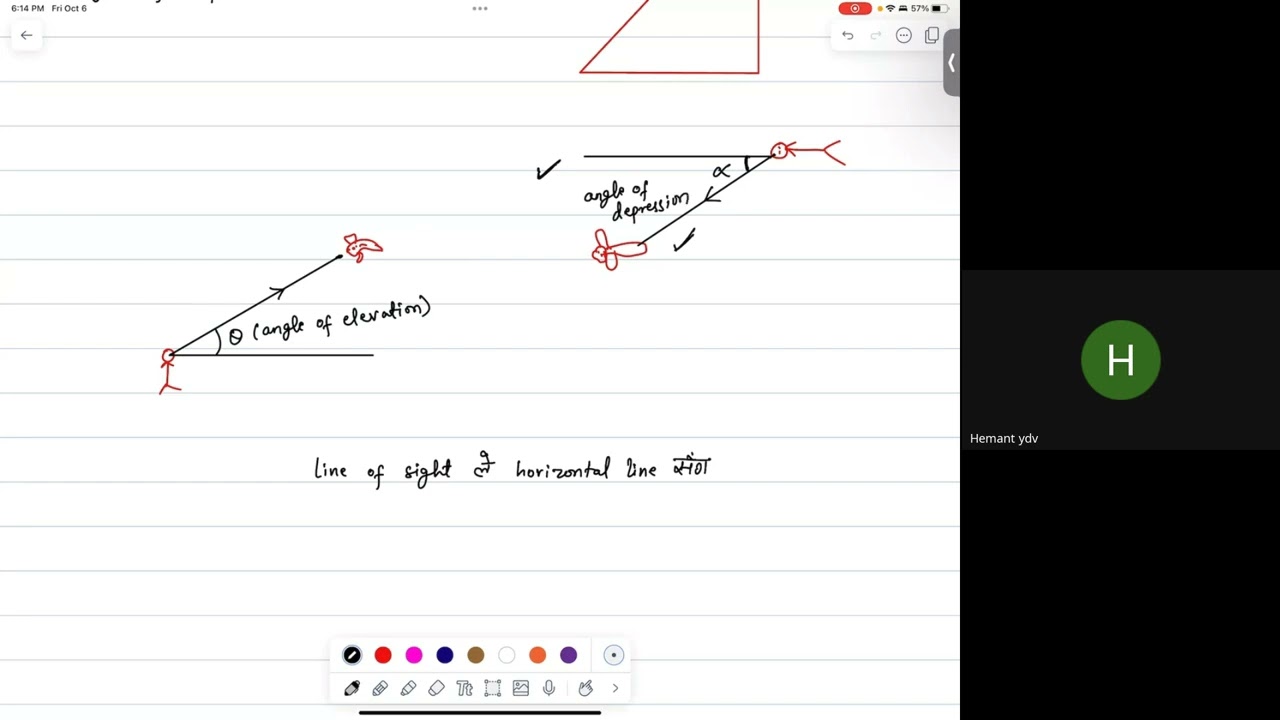 6:14 PM Fri Oct 6
57%
α
angle of
depression
θ (angle of elevation)
line of sight व horizontal line
H
Hemant ydv
Tt